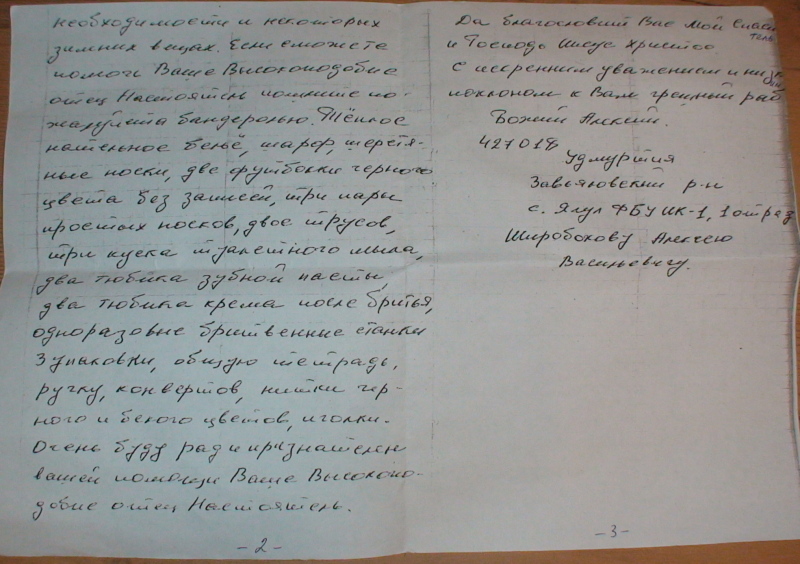 необходимости и некоторых
зимних вещах. Если сможете
помочь Ваше Высокоподобие
отец Настоятель помшите по-
жалуйста бандеролью. Тёплое
нательное бельё, шарф, шерстя-
ные носки, две футболки черного
цвета без записей, три пары
простых носков, двое трусов,
три куска туалетного мыла,
два тюбика зубной пасты,
два тюбика крема после бритья,
одноразовые бритвенные станки
3 упаковки, общую тетрадь,
ручку, конвертов, нитки чер-
ного и белого цветов, иголки.
Очень буду рад и признателен
вашей помощи Ваше Высокопо-
добие отец Настоятель.
-2-
Да благословит Вас Мой Спаси
тель
и Господь Иисус Христос.
С искренним уважением и низк
поклоном к Вам грешный раб
Божий Алексий.
427018
Удмуртия
Завьяловский р-н
с. Ягул ФБУ ИК-1, 1 отряд
Широбокову Алексею
Васильевичу.
-3-